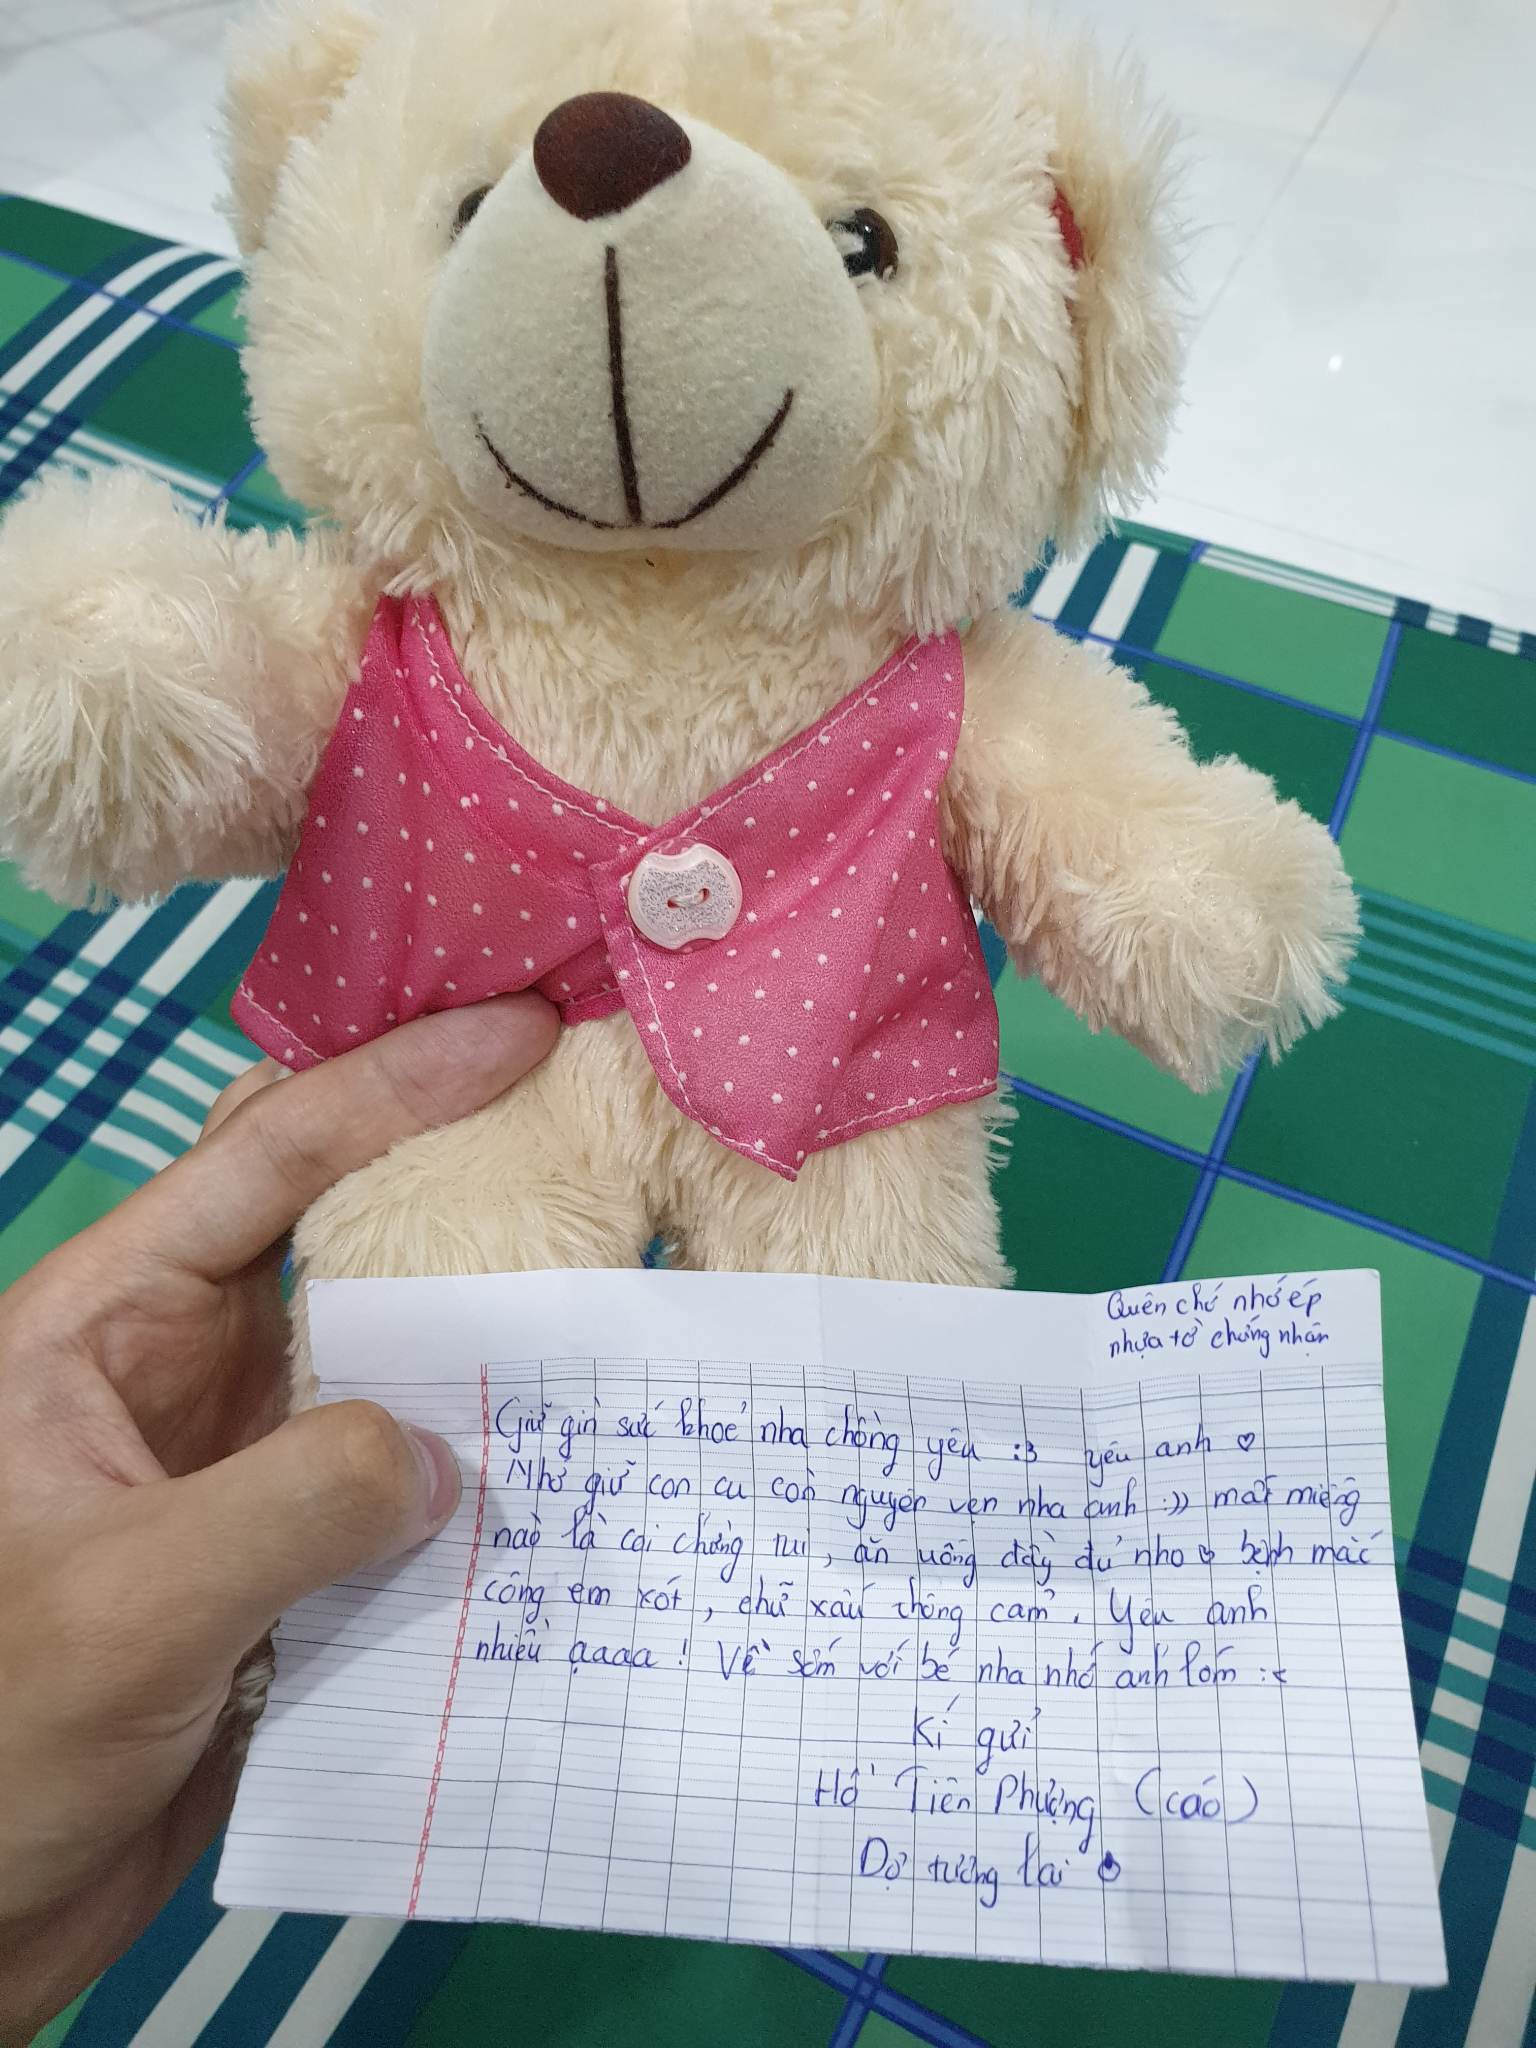 Quên chớ nhớ ép
nhựa tờ chứng nhận
Giữ gìn sức khoẻ nha chồng yêu :3 yêu anh ♡
Nhớ giữ con cu còn nguyên vẹn nha anh :)) mất miếng
nào là coi chừng tui, ăn uống đầy đủ nho bệnh mắc
công em xót, chữ xấu thông cảm. Yêu anh
nhiều ạaaa! Về sớm với bé nha nhớ anh lớm :<
Kí gửi
Hồ Tiên Phượng (cáo)
Dợ tương lai